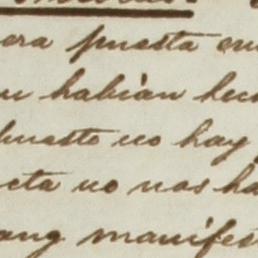 era puesta en
habían hec
puesto no hay
cta no nos ha
ang manifes